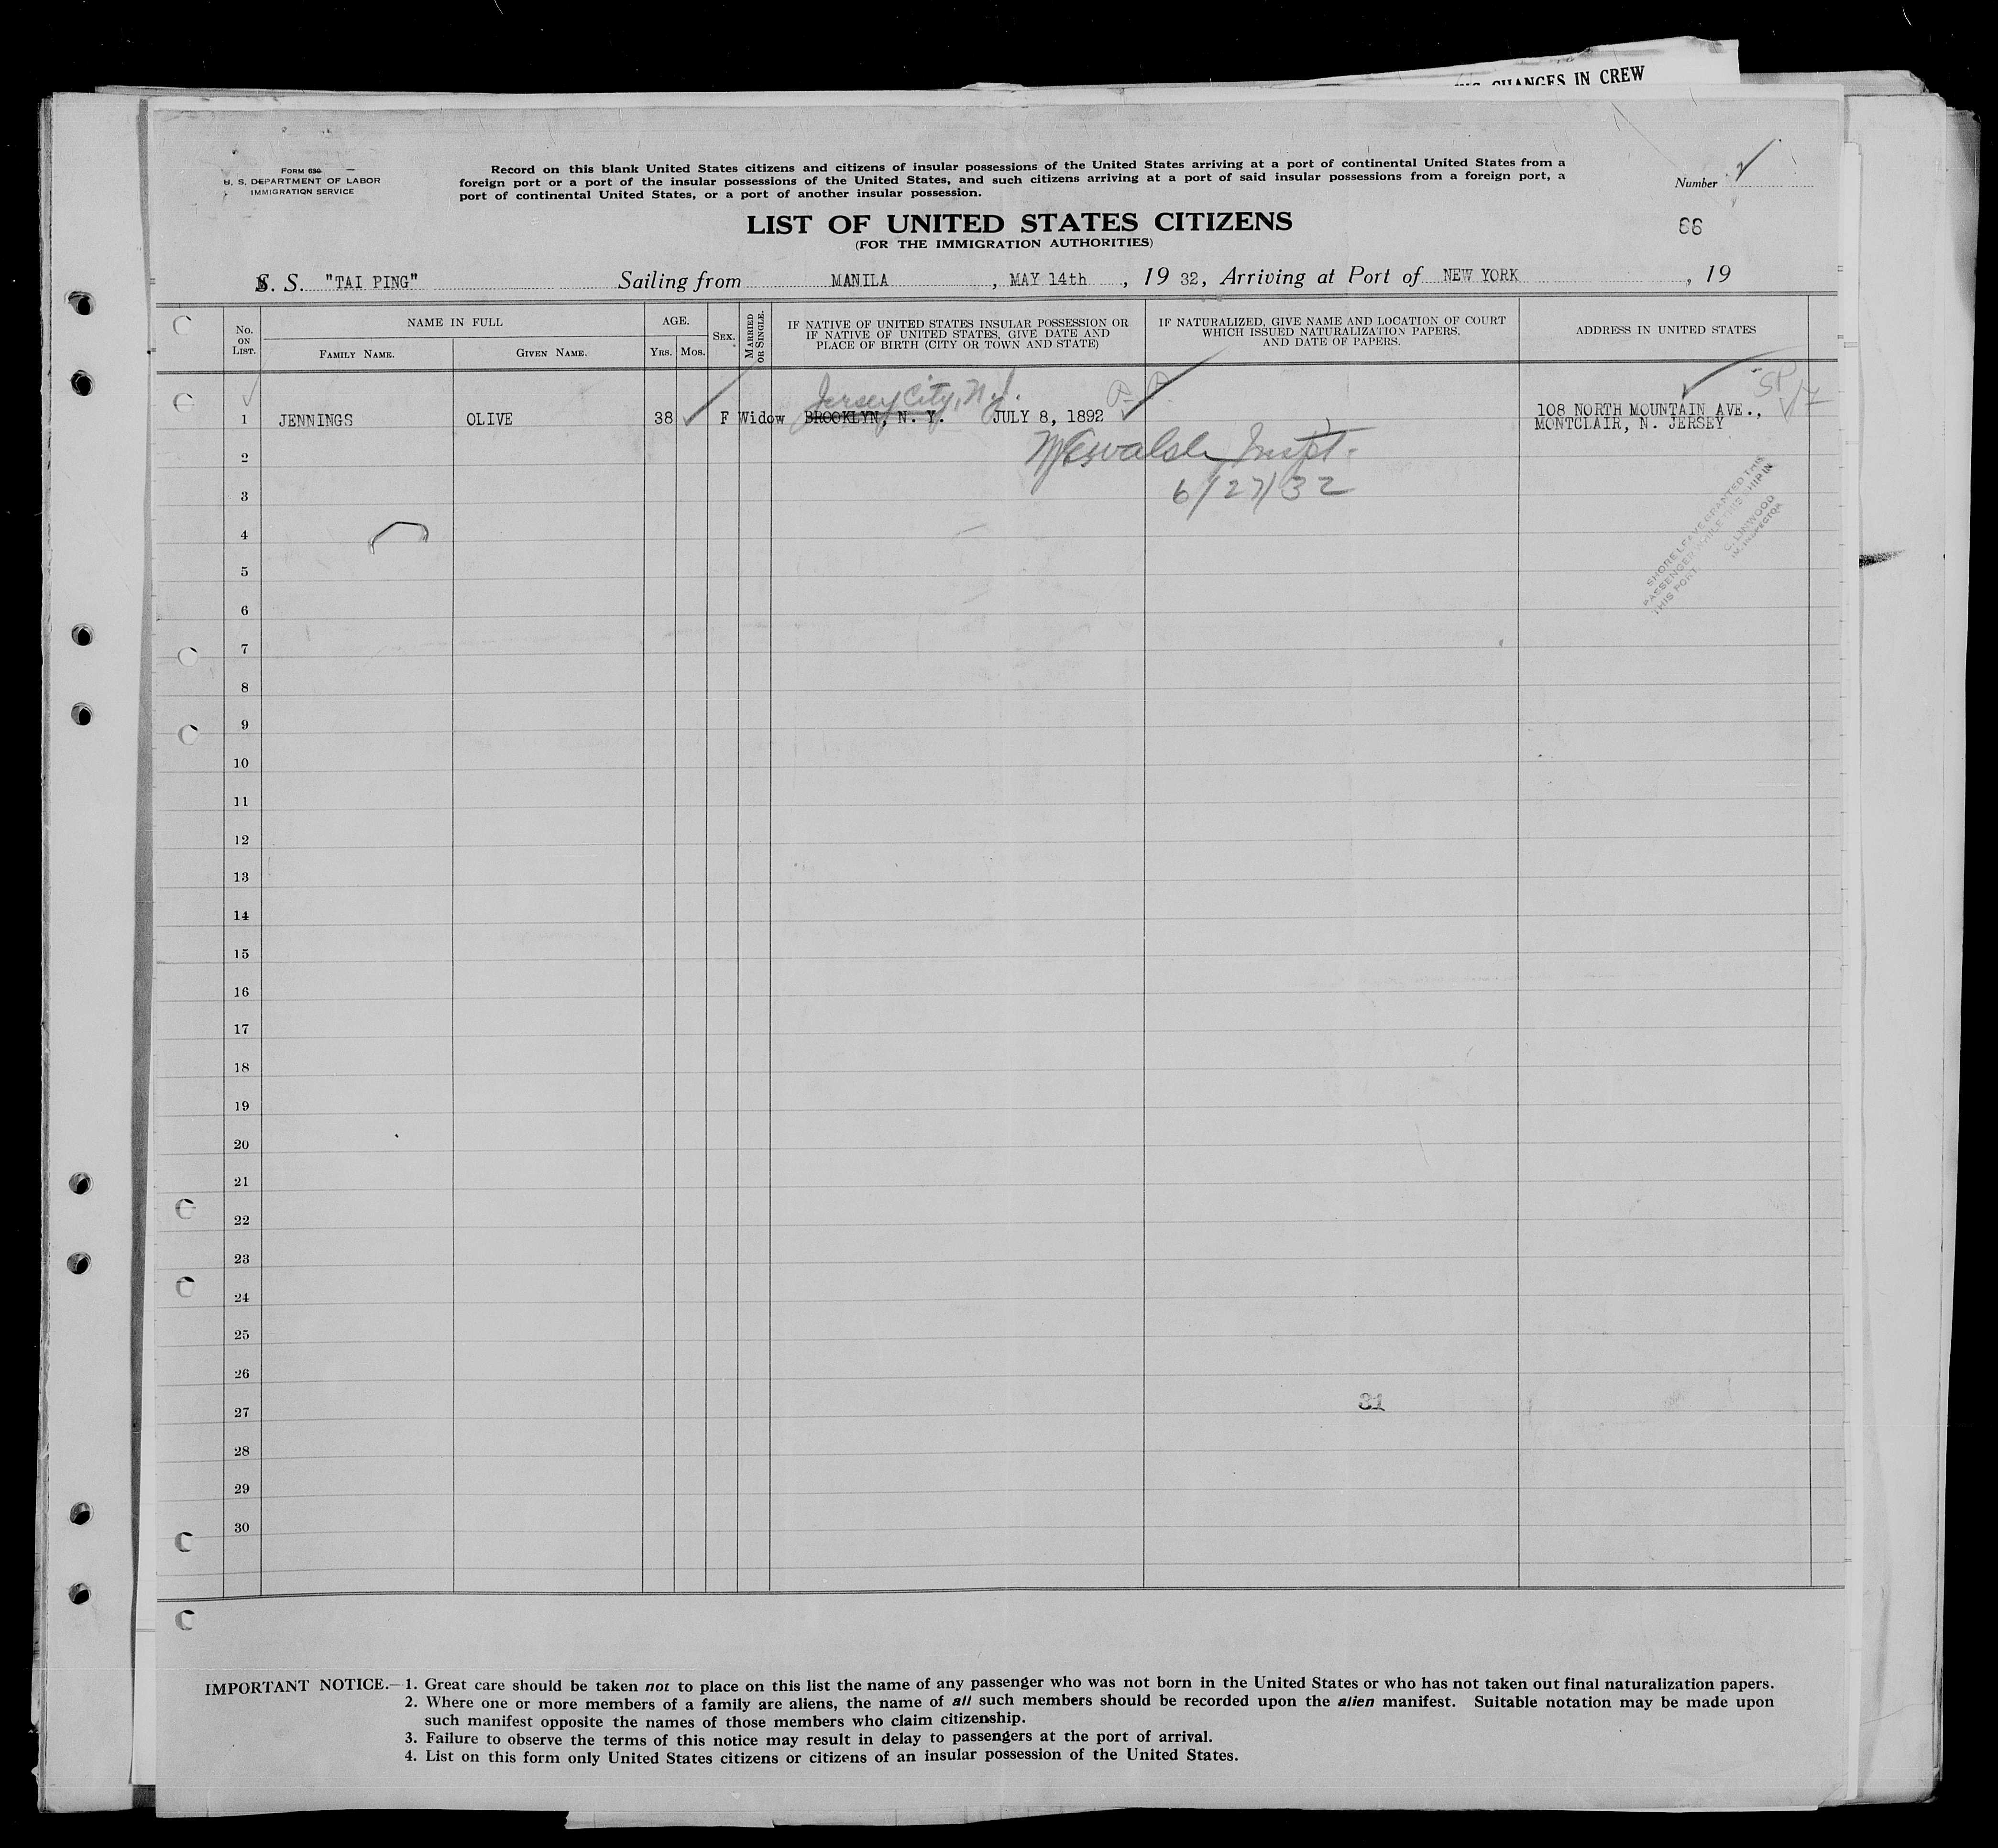 CHANGES IN CREW
FORM 630
U. S. DEPARTMENT OF LABOR
IMMIGRATION SERVICE
Record on this blank United States citizens and citizens of insular possessions of the United States arriving at a port of continental United States from a
foreign port or a port of the insular possessions of the United States, and such citizens arriving at a port of said insular possessions from a foreign port, a
port of continental United States, or a port of another insular possession.
Number
LIST OF UNITED STATES CITIZENS
(FOR THE IMMIGRATION AUTHORITIES)
S. S. "TAI PING" Sailing from MANILA, MAY 14th, 19 32, Arriving at Port of NEW YORK, 19
No. ON LIST.
NAME IN FULL
FAMILY NAME.
GIVEN NAME.
AGE.
YRS. MOS.
SEX.
MARRIED OR SINGLE.
IF NATIVE OF UNITED STATES INSULAR POSSESSION OR
IF NATIVE OF UNITED STATES, GIVE DATE AND
PLACE OF BIRTH (CITY OR TOWN AND STATE)
IF NATURALIZED, GIVE NAME AND LOCATION OF COURT
WHICH ISSUED NATURALIZATION PAPERS,
AND DATE OF PAPERS.
ADDRESS IN UNITED STATES
Jersey City, N.J.
1 JENNINGS OLIVE 38 F Widow BROOKLYN, N. Y. JULY 8, 1892 108 NORTH MOUNTAIN AVE.,
MONTCLAIR, N. JERSEY
2
Walsh Inspt.
3
6/27/32
SHORE LEAVE GRANTED THIS
PASSENGER WHILE THIS SHIP IN
THIS PORT
IM. INSPECTOR
4
5
6
7
8
9
10
11
12
13
14
15
16
17
18
19
20
21
22
23
24
25
26
27
31
28
29
30
IMPORTANT NOTICE.—1. Great care should be taken not to place on this list the name of any passenger who was not born in the United States or who has not taken out final naturalization papers.
2. Where one or more members of a family are aliens, the name of all such members should be recorded upon the alien manifest. Suitable notation may be made upon
such manifest opposite the names of those members who claim citizenship.
3. Failure to observe the terms of this notice may result in delay to passengers at the port of arrival.
4. List on this form only United States citizens or citizens of an insular possession of the United States.